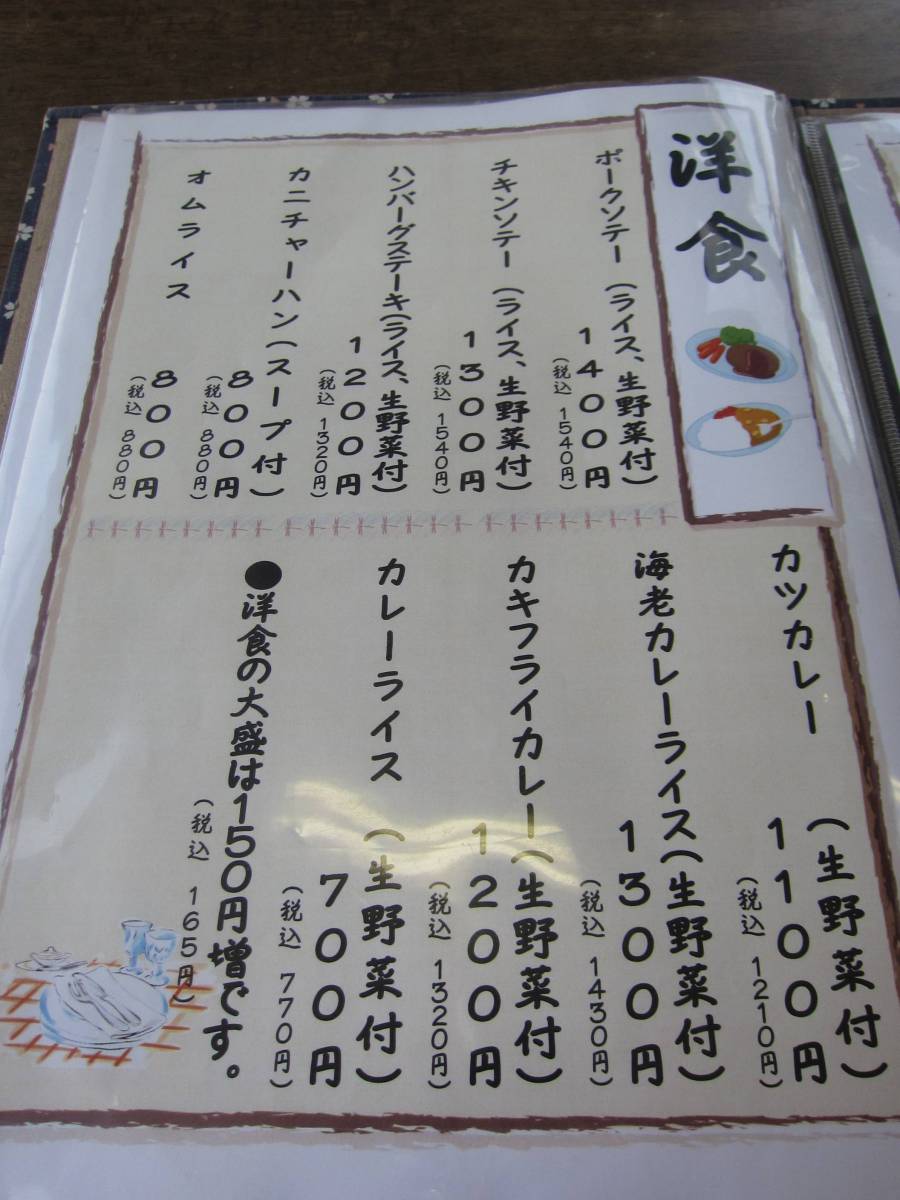 洋食
ポークソテー(ライス、生野菜付)
1400円
(税込 1540円)
チキンソテー(ライス、生野菜付)
1300円
(税込 1540円)
ハンバーグステーキ(ライス、生野菜付)
1200円
(税込 1320円)
カニチャーハン(スープ付)
800円
(税込 880円)
オムライス
800円
(税込 880円)
カツカレー(生野菜付)
1100円
(税込 1210円)
海老カレーライス(生野菜付)
1300円
(税込 1430円)
カキフライカレー(生野菜付)
1200円
(税込 1320円)
カレーライス(生野菜付)
700円
(税込 770円)
●洋食の大盛は150円増です。
(税込 165円)